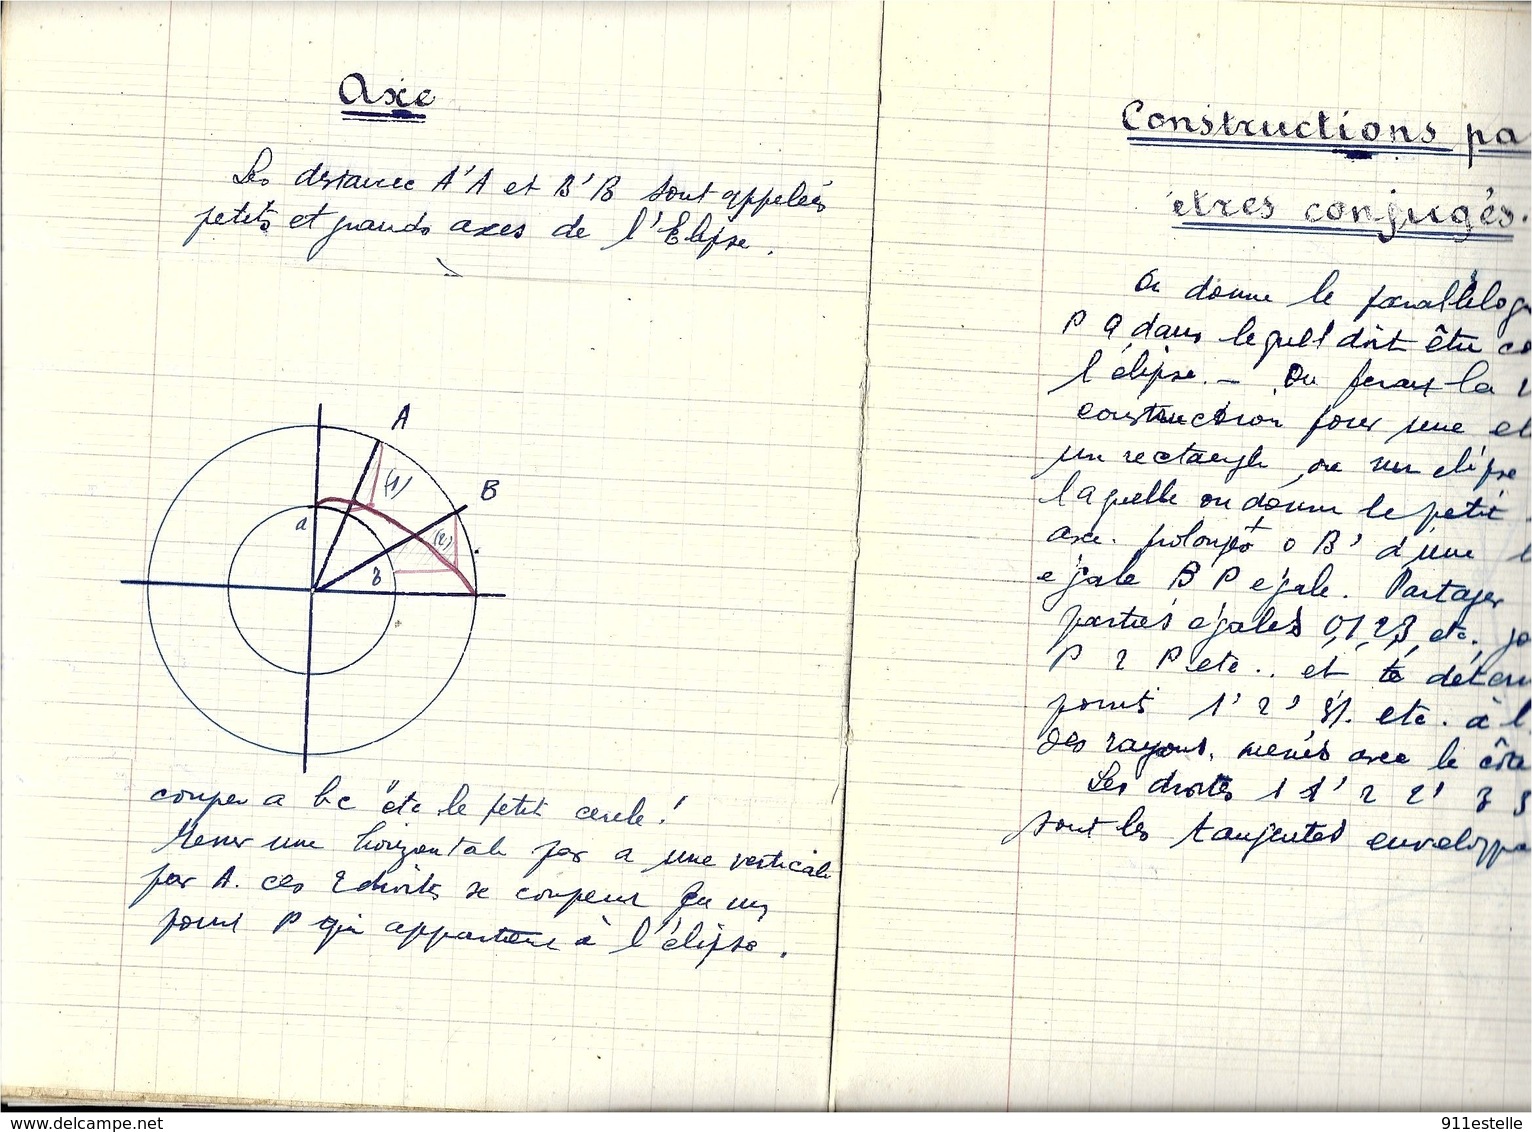 Axe
Les distance A'A et B'B sont appelées
petits et grands axes de l'Elipse.
A
(1)
B
a
(2)
b
couper a b c etc le petit cercle!
Mener une horizontale par a une verticale
par A. ces 2 droites se coupent en un
point P qui appartient à l'élipse.
Constructions pa
ètres conjugés.
On donne le parallélog
P Q dans lequel doit être co
l'élipse. - On ferait la
construction pour une el
un rectangle ou un elipse
laquelle on donne le petit
axe. prolongt o B' d'une
egale B P egale. Partager
parties égales 0, 1, 2, 3, etc.
P 2 P etc.. et déter
points 1' 2' 3'. etc. à l
des rayons, menés avec le côté
Les droites 1 1' 2 2' 3 3
sont les tangentes envelopp
www.delcampe.net
911estelle